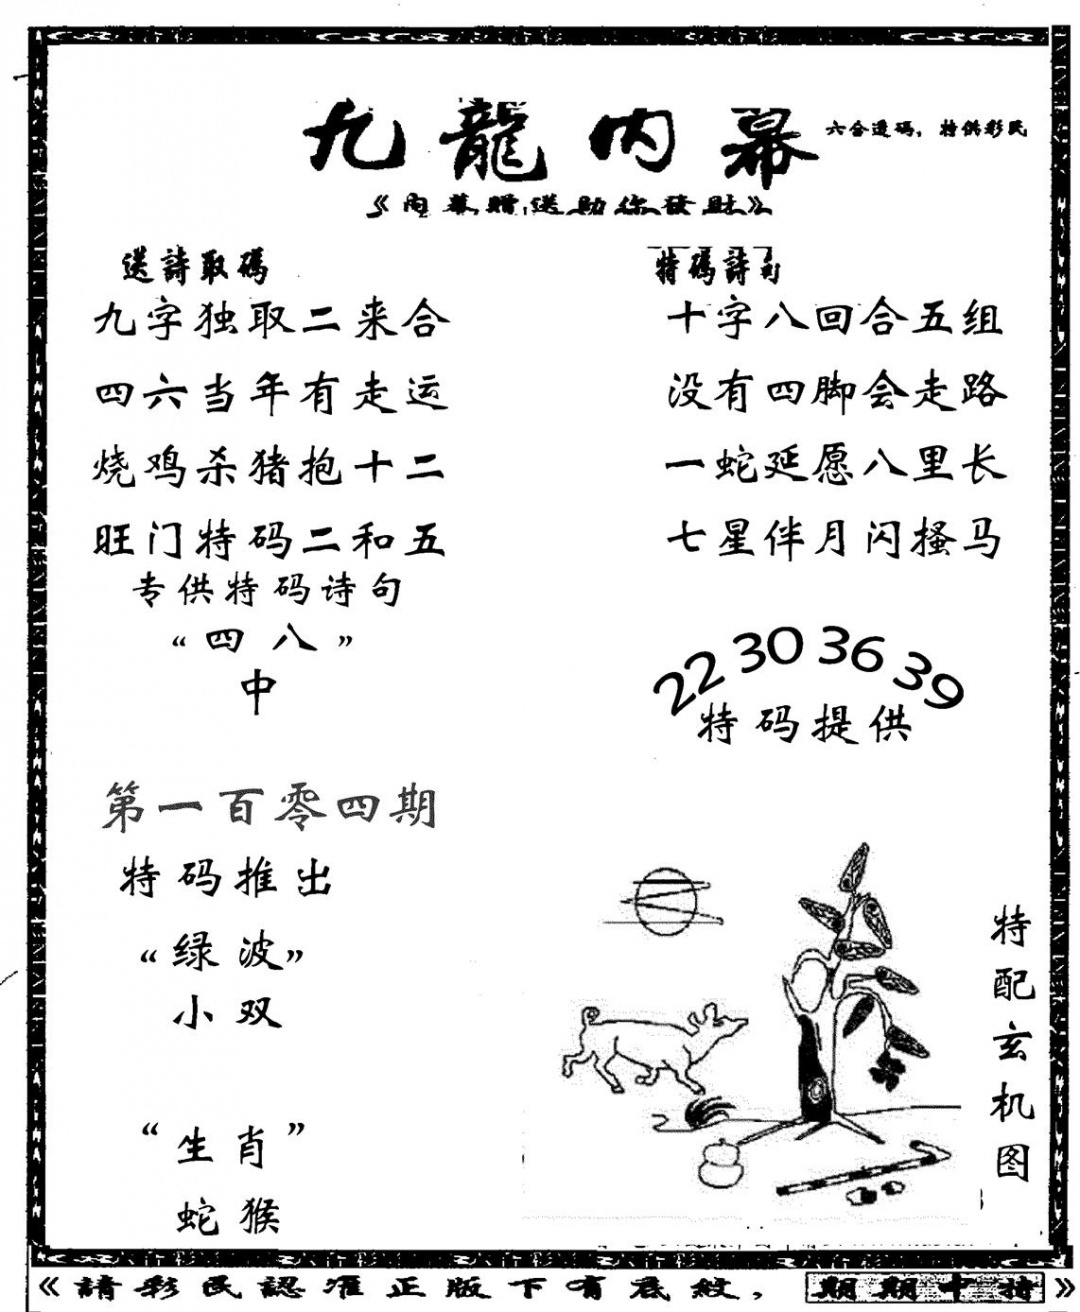 九龍内幕
六合透码，特供彩民
《内幕赠送助你發財》
送詩取碼
九字独取二来合
四六当年有走运
烧鸡杀猪抱十二
旺门特码二和五
专供特码诗句
“四八”
中
特碼詩句
十字八回合五组
没有四脚会走路
一蛇延愿八里长
七星伴月闪搔马
22 30 36 39
特码提供
第一百零四期
特码推出
“绿波”
小双
“生肖”
蛇猴
特配玄机图
《請彩民認准正版下有底紋，期期中特》